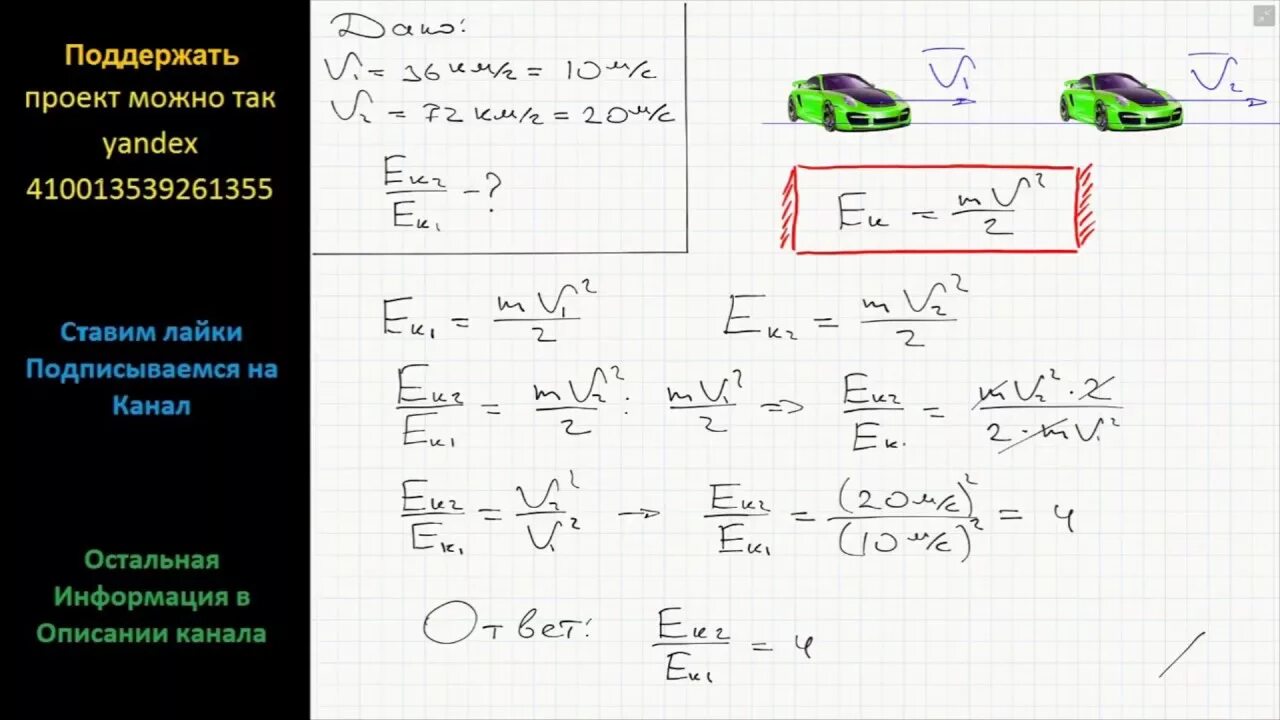 Поддержать
проект можно так
yandex
410013539261355
Ставим лайки
Подписываемся на
Канал
Остальная
Информация в
Описании канала
Дано:
V₁ = 36 км/г = 10 м/с
V₂ = 72 км/г = 20 м/с
Eк₂/Eк₁ - ?
V₁ V₂
Eк = mV²/2
Eк₁ = mV₁²/2 Eк₂ = mV₂²/2
Eк₂/Eк₁ = mV₂²/2 : mV₁²/2 => Eк₂/Eк. = mV₂²·2/2·mV₁²
Eк₂/Eк₁ = V₂²/V₁² → Eк₂/Eк₁ = (20 м/с)²/(10 м/с)² = 4
Ответ: Eк₂/Eк₁ = 4